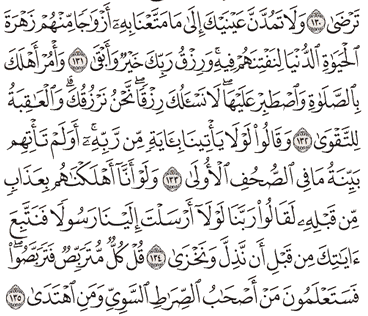 تَرْضَىٰ ١٣٠ وَلَا تَمُدَّنَّ عَيْنَيْكَ إِلَىٰ مَا مَتَّعْنَا بِهِۦٓ أَزْوَٰجًا مِّنْهُمْ زَهْرَةَ
ٱلْحَيَوٰةِ ٱلدُّنْيَا لِنَفْتِنَهُمْ فِيهِ ۚ وَرِزْقُ رَبِّكَ خَيْرٌ وَأَبْقَىٰ ١٣١ وَأْمُرْ أَهْلَكَ
بِٱلصَّلَوٰةِ وَٱصْطَبِرْ عَلَيْهَا ۖ لَا نَسْـَٔلُكَ رِزْقًا ۖ نَّحْنُ نَرْزُقُكَ ۗ وَٱلْعَـٰقِبَةُ
لِلتَّقْوَىٰ ١٣٢ وَقَالُوا۟ لَوْلَا يَأْتِينَا بِـَٔايَةٍ مِّن رَّبِّهِۦٓ ۚ أَوَلَمْ تَأْتِهِم
بَيِّنَةُ مَا فِى ٱلصُّحُفِ ٱلْأُولَىٰ ١٣٣ وَلَوْ أَنَّآ أَهْلَكْنَـٰهُم بِعَذَابٍ
مِّن قَبْلِهِۦ لَقَالُوا۟ رَبَّنَا لَوْلَآ أَرْسَلْتَ إِلَيْنَا رَسُولًا فَنَتَّبِعَ
ءَايَـٰتِكَ مِن قَبْلِ أَن نَّذِلَّ وَنَخْزَىٰ ١٣٤ قُلْ كُلٌّ مُّتَرَبِّصٌ فَتَرَبَّصُوا۟ ۖ
فَسَتَعْلَمُونَ مَنْ أَصْحَـٰبُ ٱلصِّرَٰطِ ٱلسَّوِىِّ وَمَنِ ٱهْتَدَىٰ ١٣٥